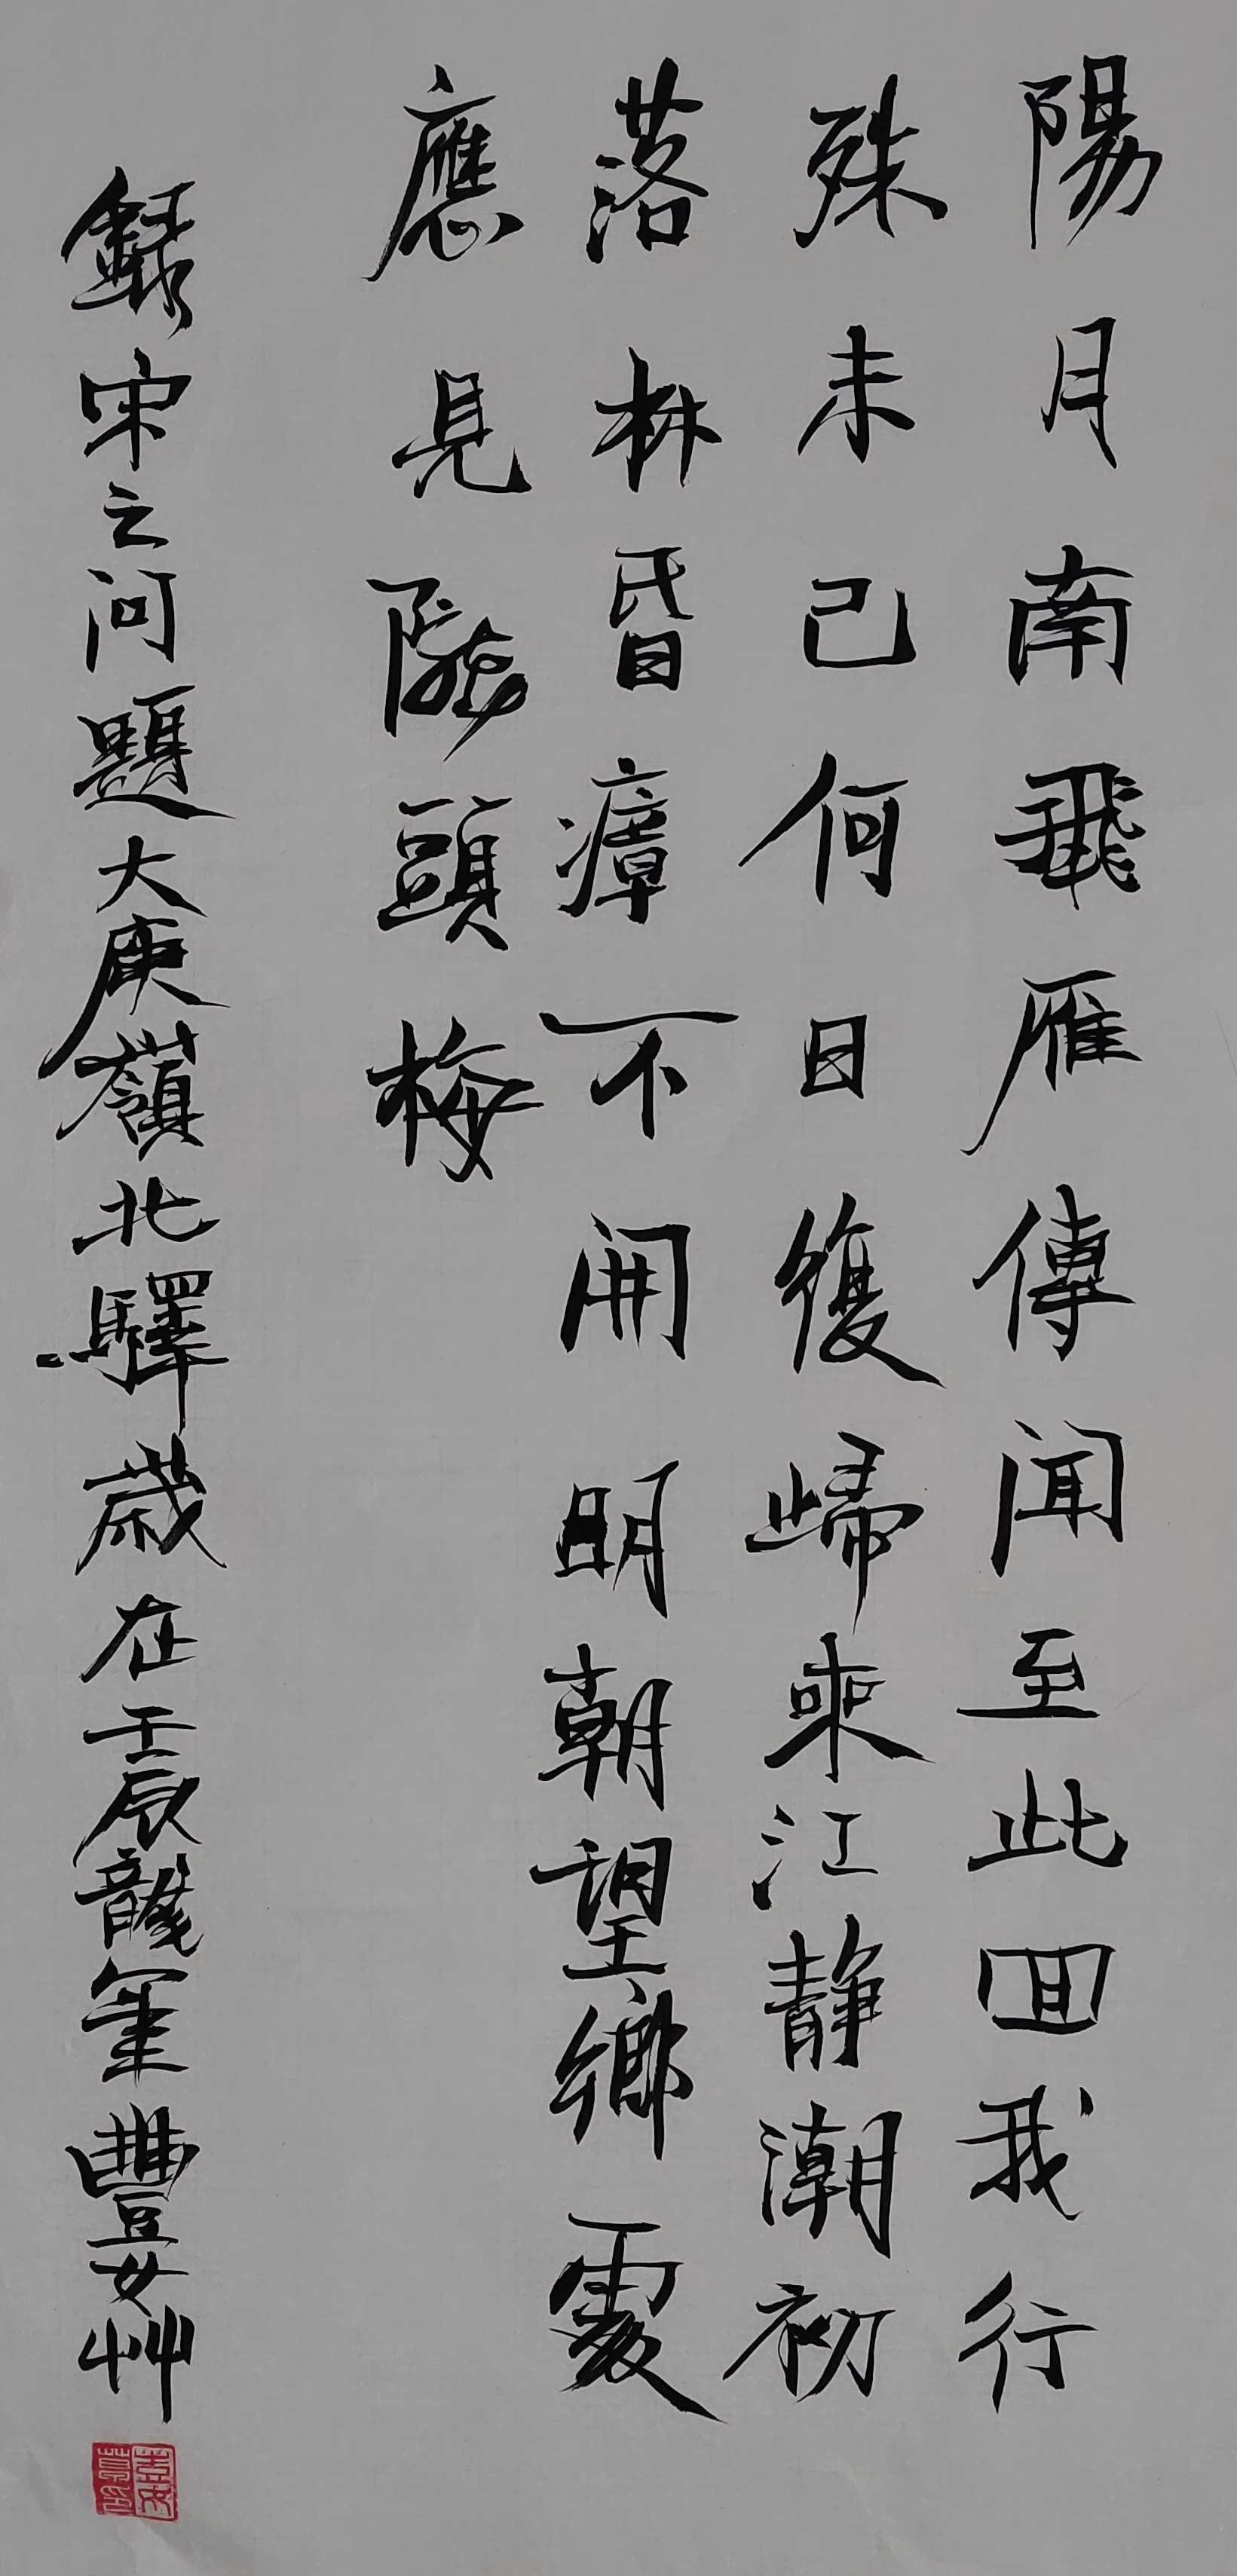 陽月南飛雁傳聞至此回我行
殊未已何日復歸來江静潮初
落林昏瘴不開明朝望鄉處
應見隴頭梅
録宋之问題大庾嶺北驛歲在壬辰龍年豐安艸